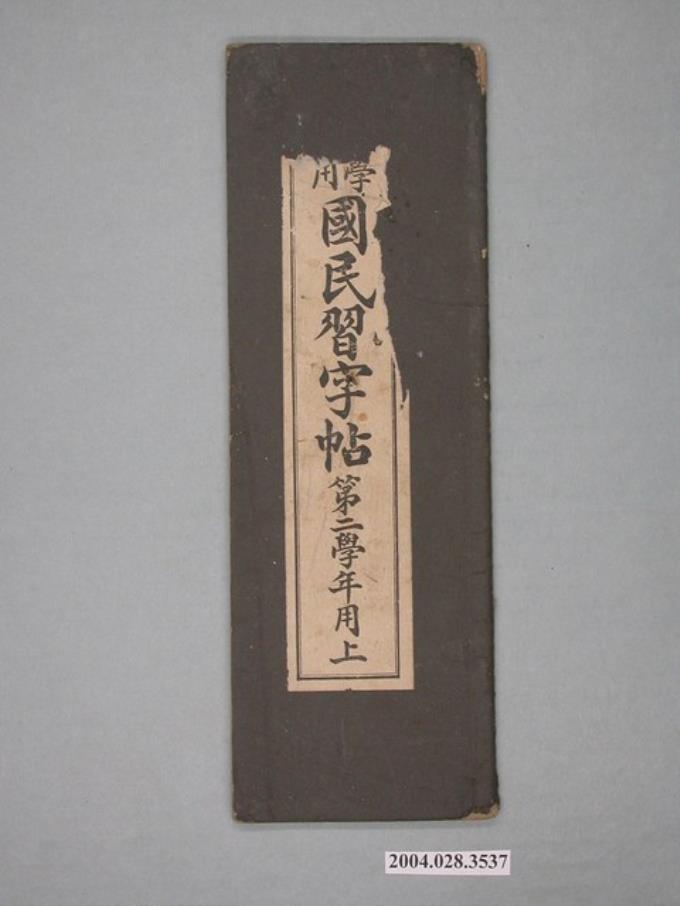 學用
國民習字帖 第二學年用上
2004.028.3537